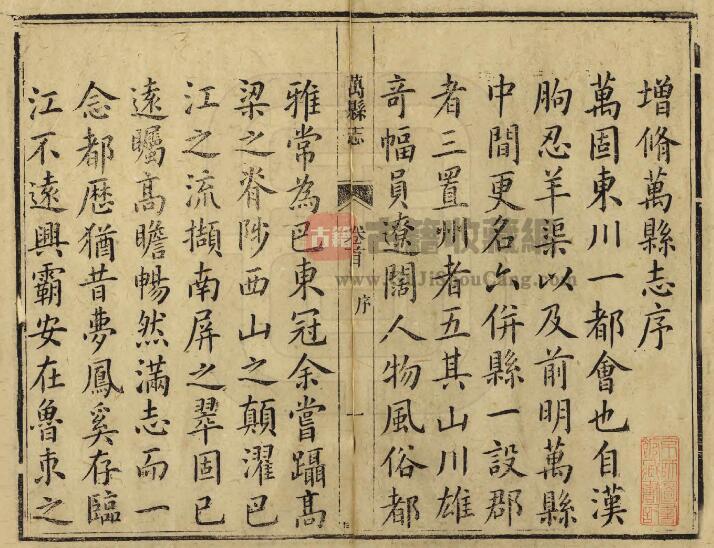 增脩萬縣志序
萬固東川一都會也自漢
朐忍羊渠以及前明萬縣
中間更名六併縣一設郡
者三置州者五其山川雄
奇幅員遼闊人物風俗都
萬縣志
卷首 序 一
雅常為巴東冠余嘗躡高
梁之脊陟西山之顛濯巴
江之流擷南屏之翠固已
遠矚高瞻暢然滿志而一
念都歷猶昔夢鳳奚存臨
江不遠興霸安在魯朿之
古籍收藏網
GuJiShouCang.com